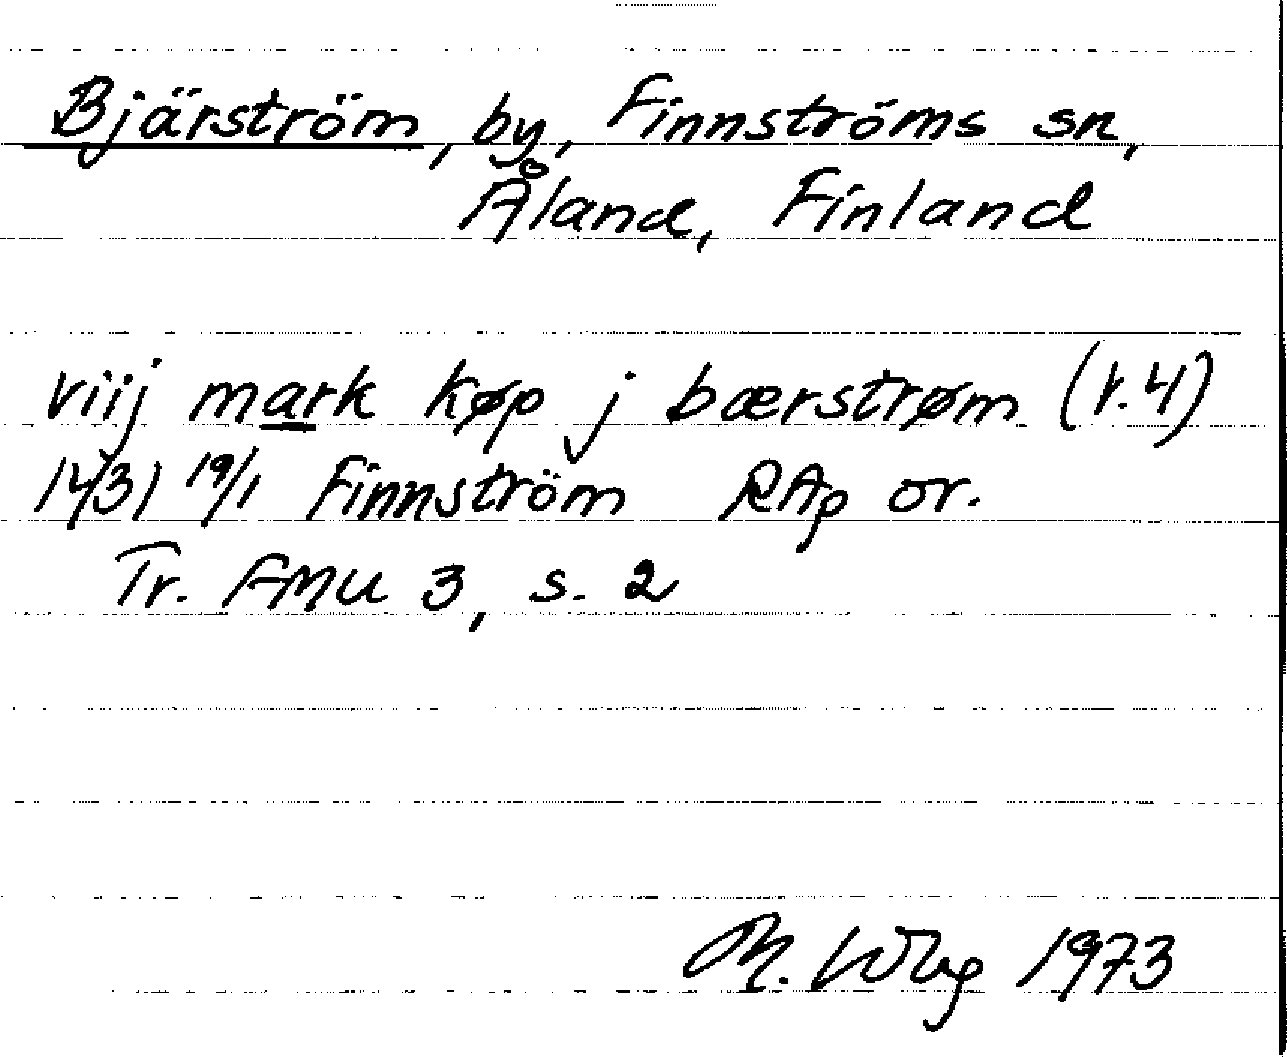 Bjärström, by, Finnströms sn,
Åland, Finland
viij mark køp j bærstrøm (r. 4)
1431 19/1 Finnström RAp or.
Tr. FMU 3, s. 2
M. Wbg 1973